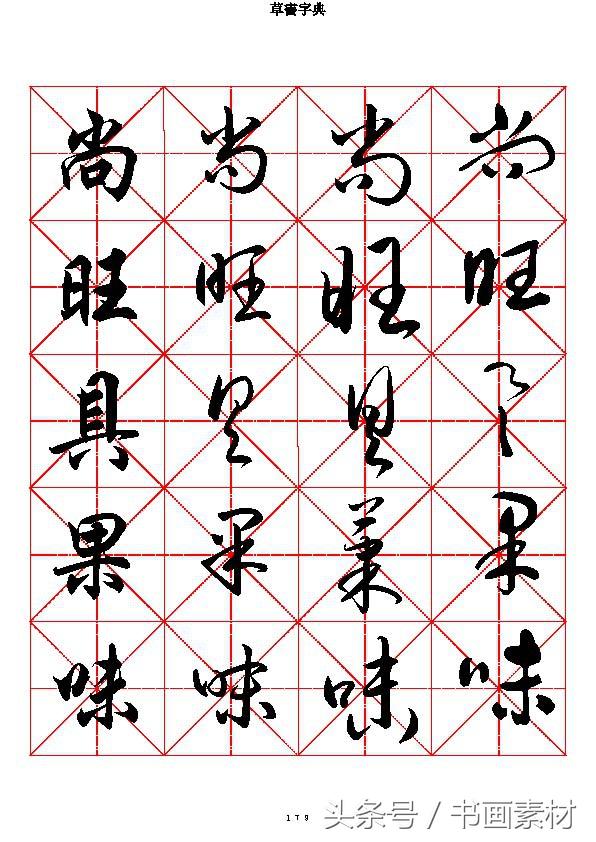 草書字典
尚 尚 尚 尚
旺 旺 旺 旺
具 具 具
果 果 菓 果
味 味 味 味
179
头条号 / 书画素材